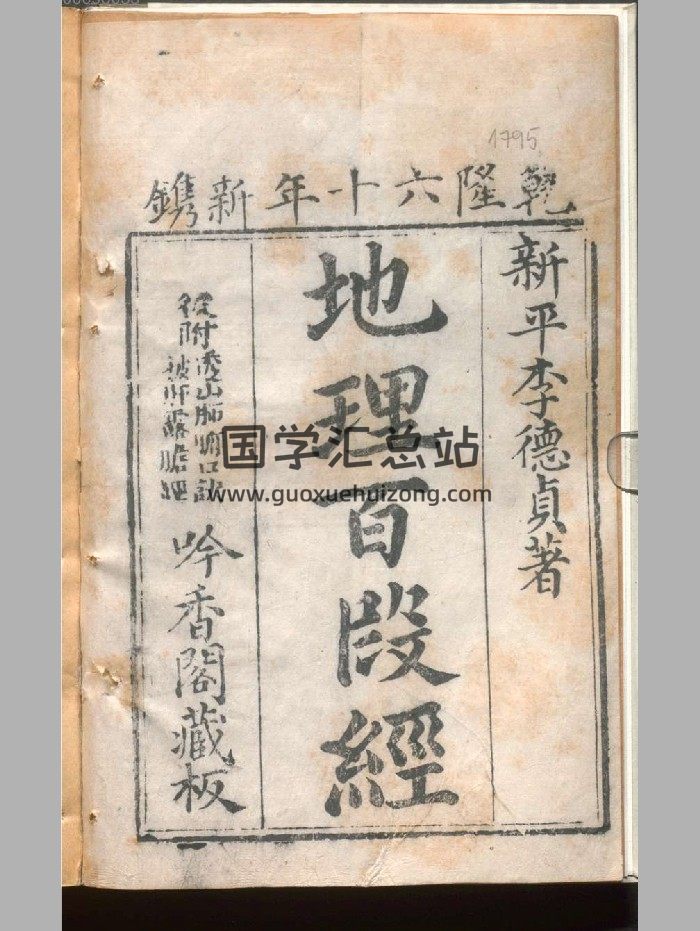 1795
乾隆六十年新鐫
新平李德貞著
地理百段經
後附透山肺腑口訣
被師露膽經
吟香閣藏板
国学汇总站
www.guoxuehuizong.com